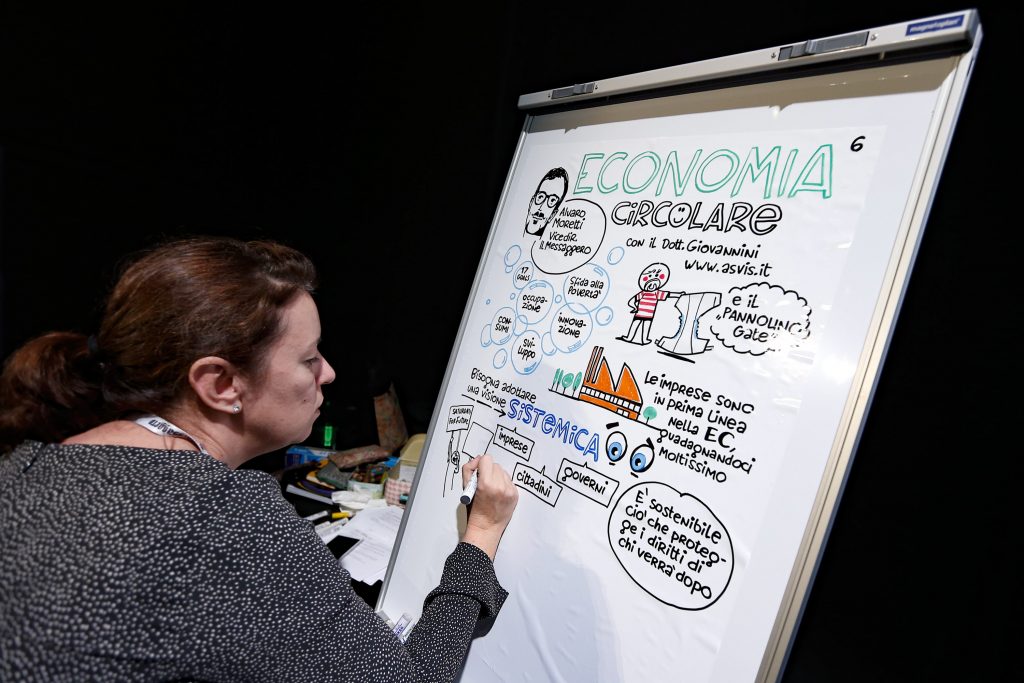 magnetoplan
6
ECONOMIA
CIRCOLARE
Alvaro
Moretti
Vicedir.
Il Messaggero
con il Dott. Giovannini
www.asvis.it
17
GOALS
Sfida alla
povertà
occupa-
zione
innova-
zione
consumi
svi-
luppo
e il
"PANNOLINO
Gate"
Le imprese sono
in prima linea
nella EC,
guadagnandoci
moltissimo
Bisogna adottare
una visione
SISTEMICA
SATURDAY
FOR FUTURE
imprese
cittadini
governi
E' sostenibile
cio' che proteg-
ge i diritti di
chi verra' dopo